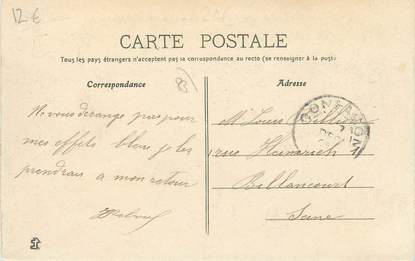 12 €
CARTE POSTALE
Tous les pays étrangers n'acceptent pas la correspondance au recto (se renseigner à la poste)
Correspondance
Adresse
83
Ne vous dérange pas pour
mes effets bleus je les
prendrais a mon retour
M Louis
rue Heinrich
Billancourt
Seine